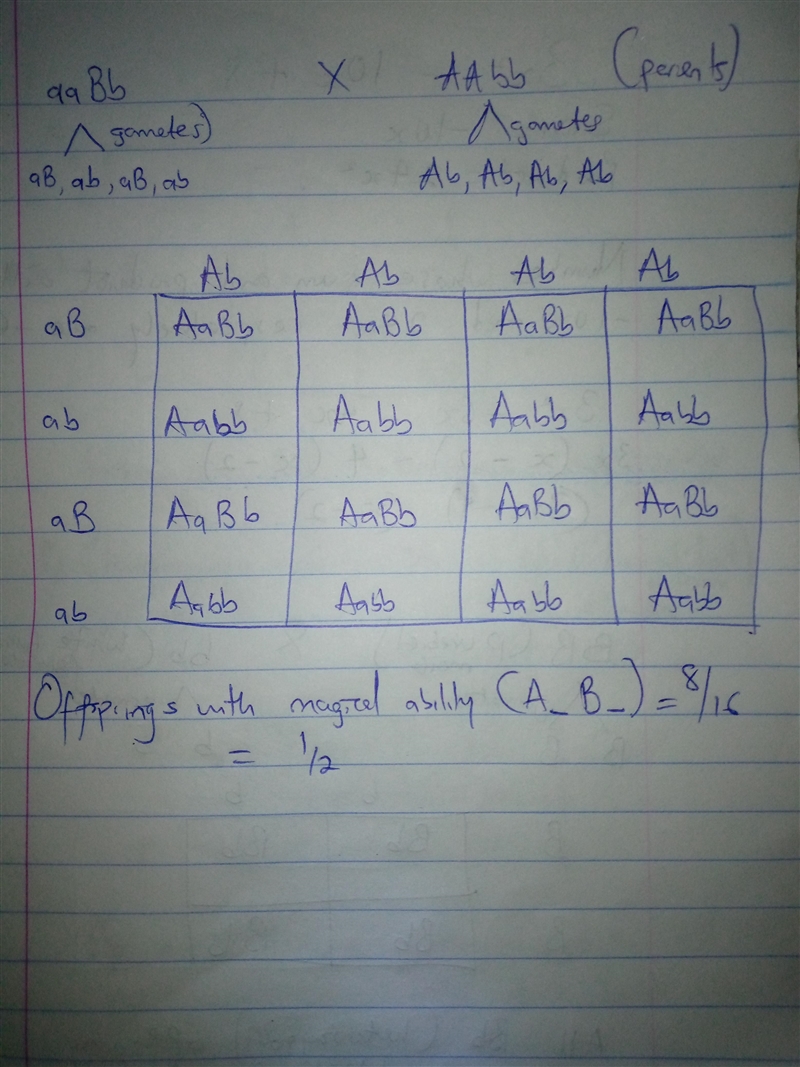 aaBb X AAbb (parents)
gametes) gametes
aB, ab, aB, ab Ab, Ab, Ab, Ab
Ab Ab Ab Ab
aB AaBb AaBb AaBb AaBb
ab Aabb Aabb Aabb Aabb
aB AaBb AaBb AaBb AaBb
ab Aabb Aabb Aabb Aabb
Offspings with magical ability (A_ B_) = 8/16
= 1/2